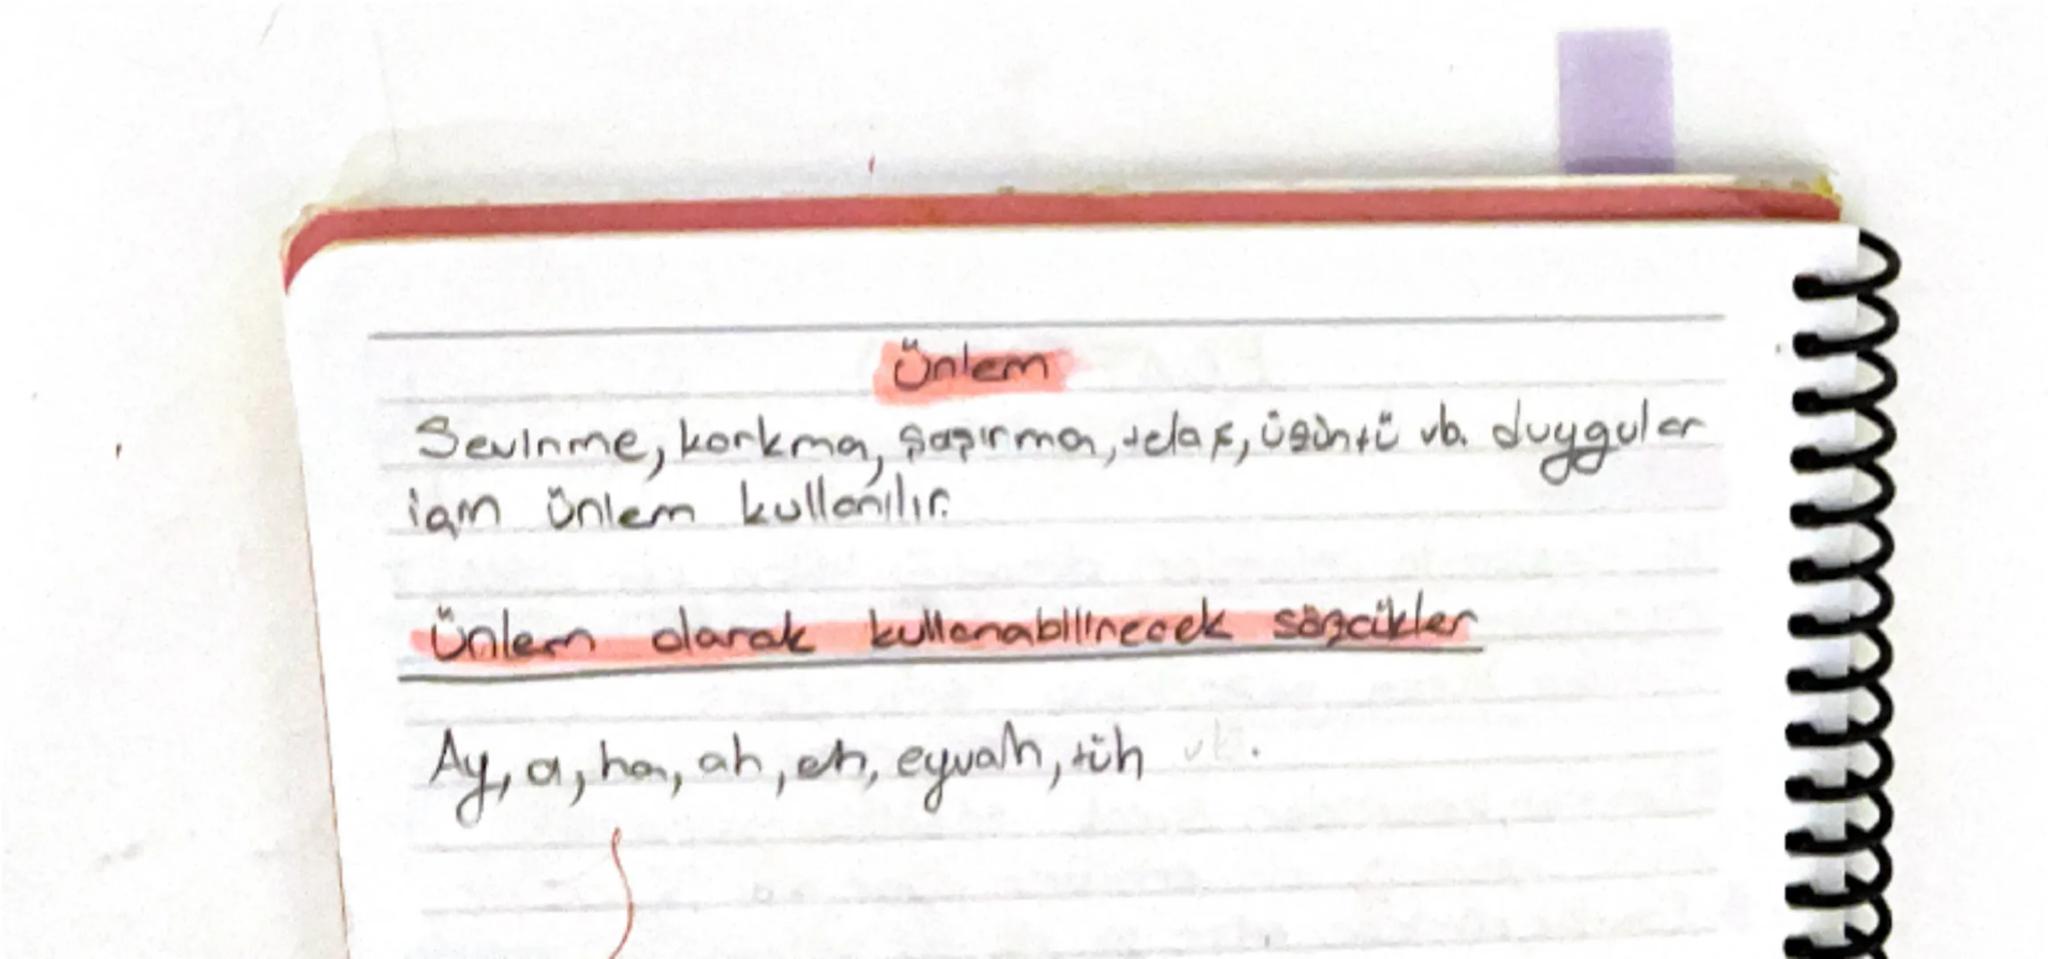 Ünlem
Sevinme, korkma, şaşırma, telaş, üzüntü vb. duygular
için ünlem kullanılır.
Ünlem olarak kullanabilinecek sözcükler
Ay, a, ha, ah, eh, eyvah, tüh vb.